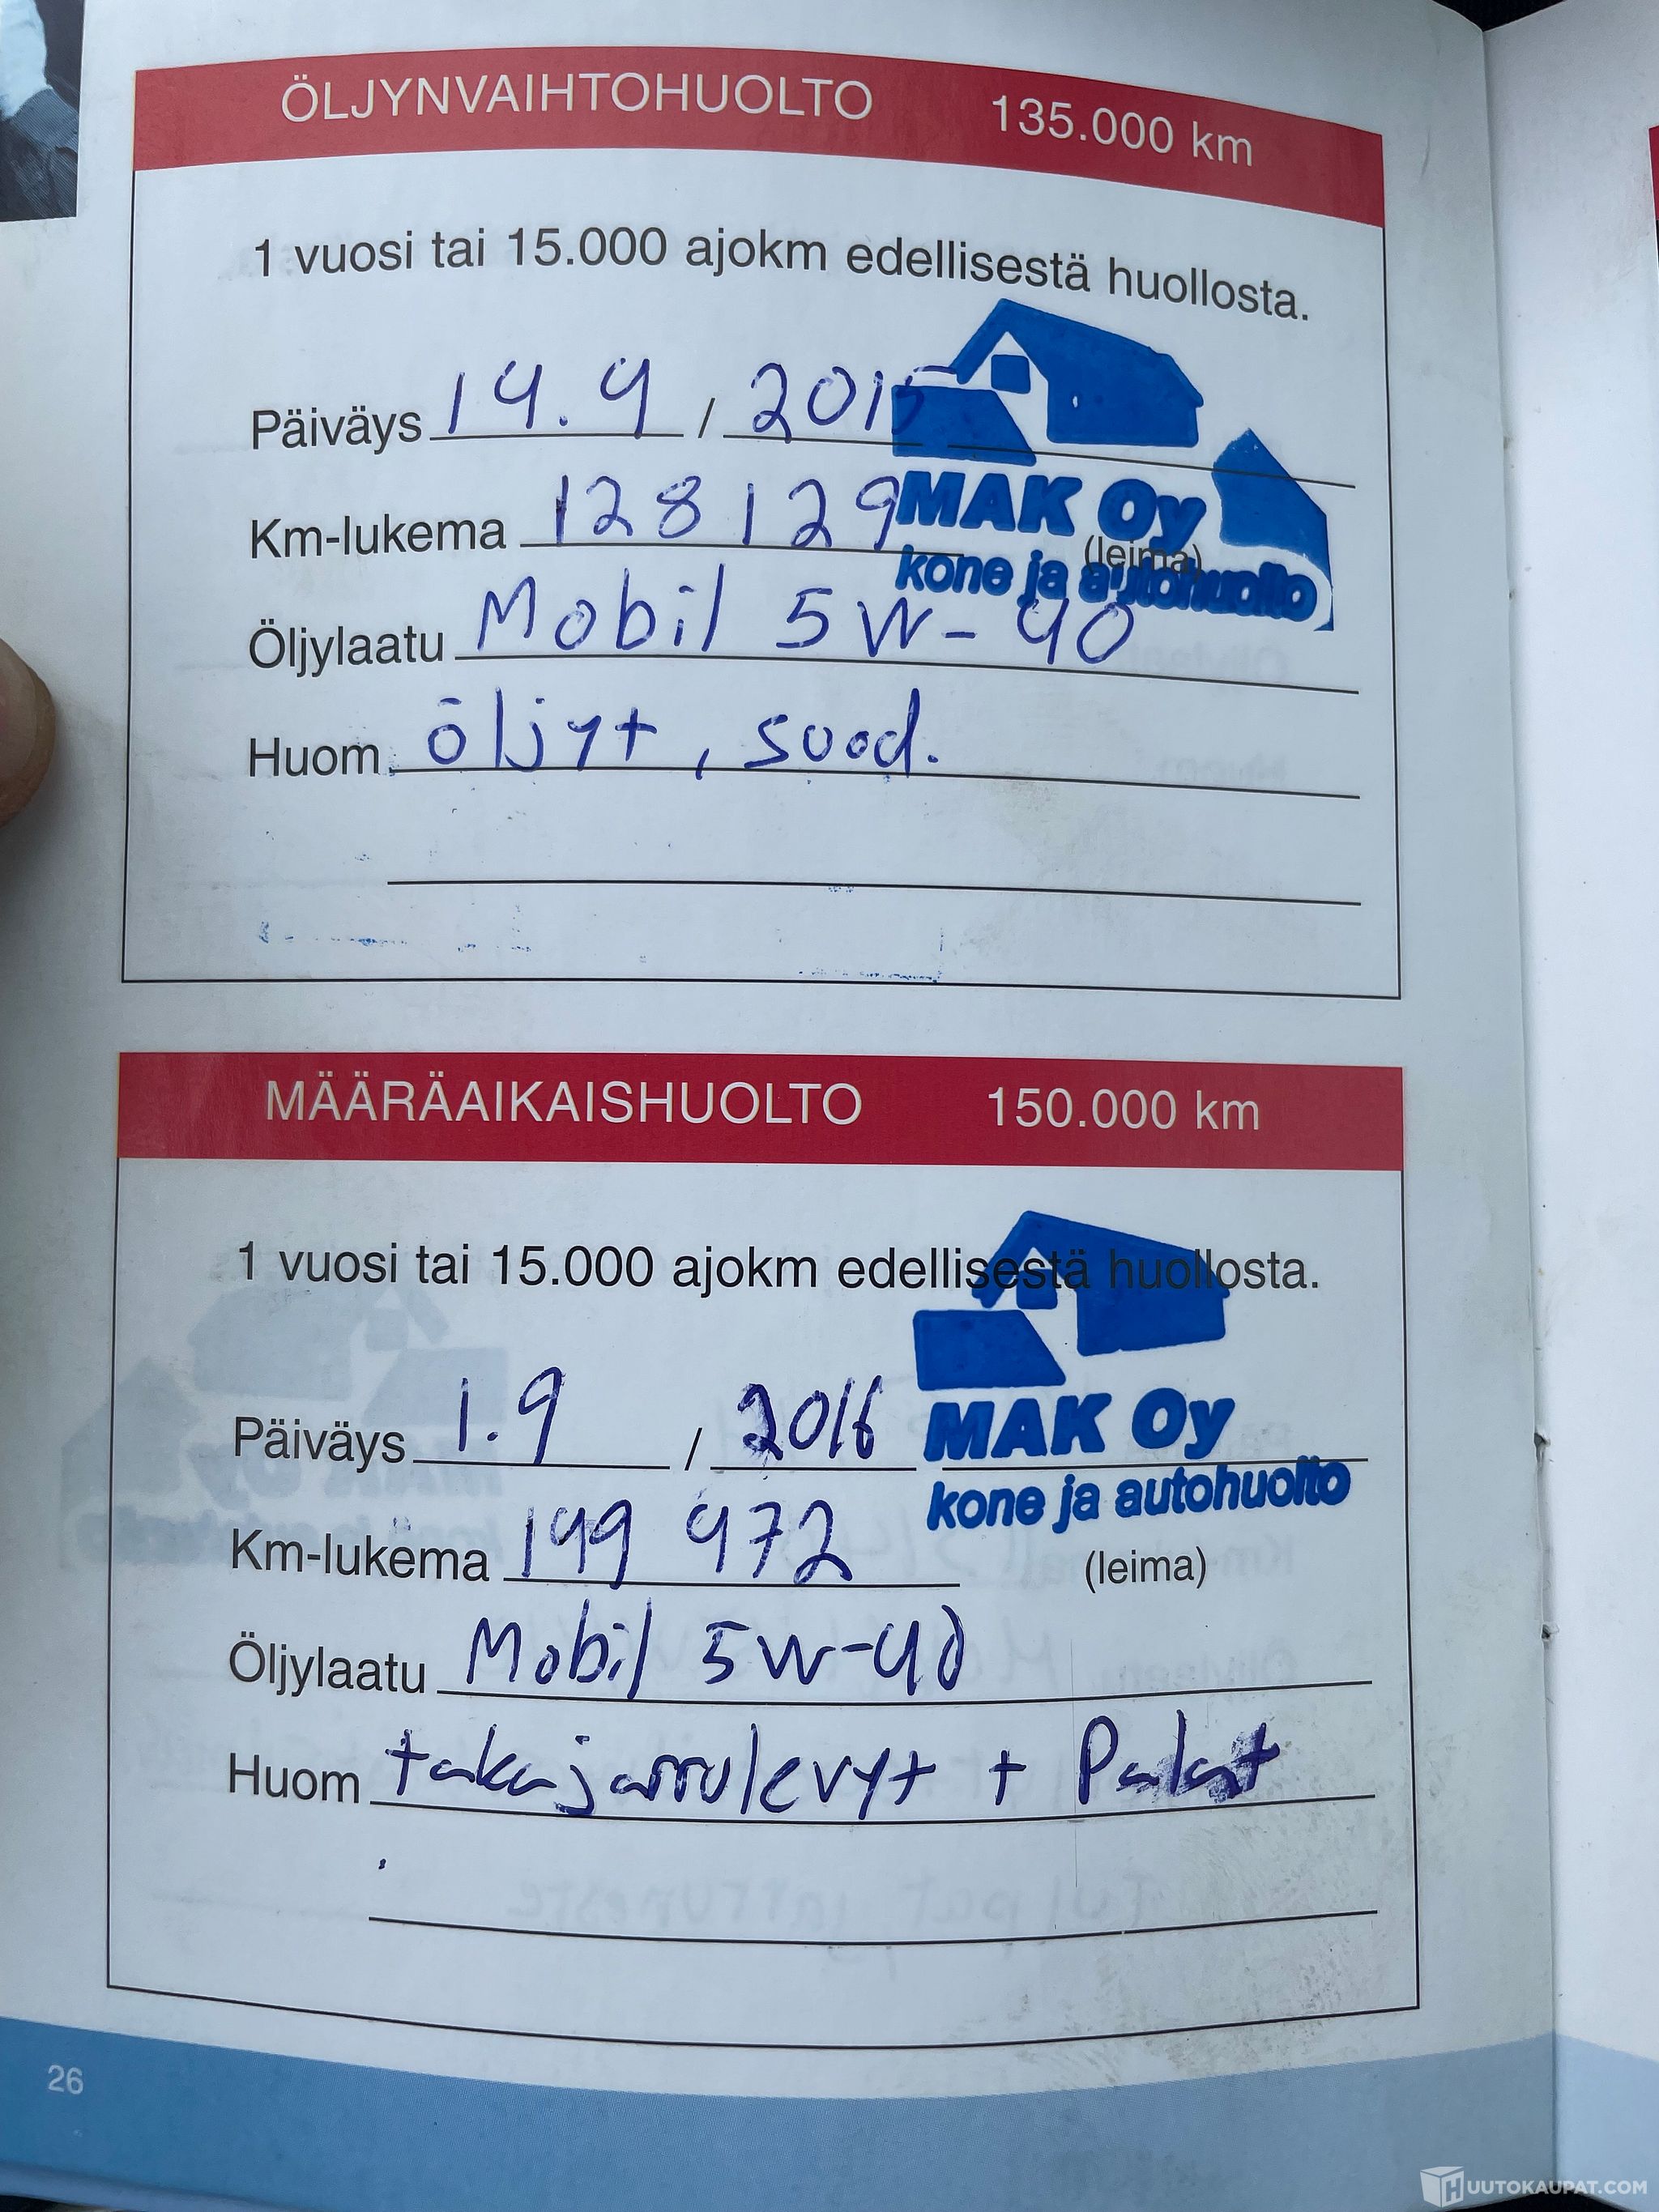 ÖLJYNVAIHTOHUOLTO 135.000 km
1 vuosi tai 15.000 ajokm edellisestä huollosta.
Päiväys 14.4 / 2015
Km-lukema 128129 MAK Oy
(leima)
kone ja autohuolto
Öljylaatu Mobil 5W-40
Huom. öljyt, suod.
MÄÄRÄAIKAISHUOLTO 150.000 km
1 vuosi tai 15.000 ajokm edellisestä huollosta.
Päiväys 1.9 / 2016 MAK Oy
kone ja autohuolto
Km-lukema 149 472 (leima)
Öljylaatu Mobil 5W-40
Huom takajarrulevyt + Palat
26
HUUTOKAUPAT.COM